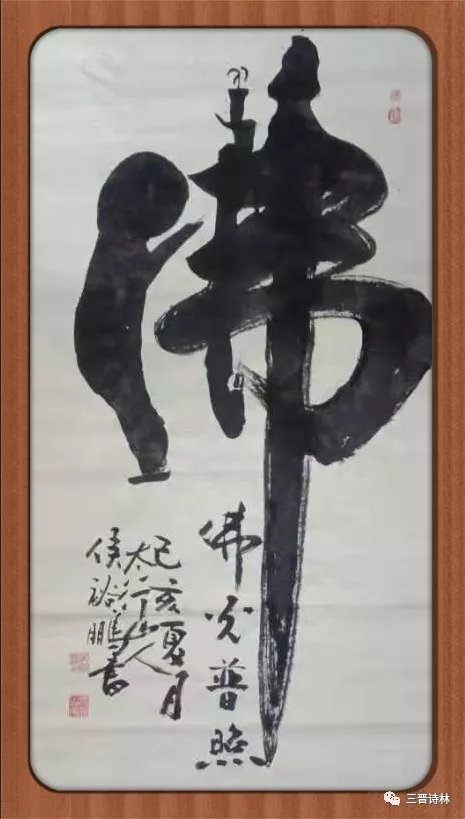 佛
佛光普照
己亥夏月
太行山人
侯裕鹏书
三晋诗林